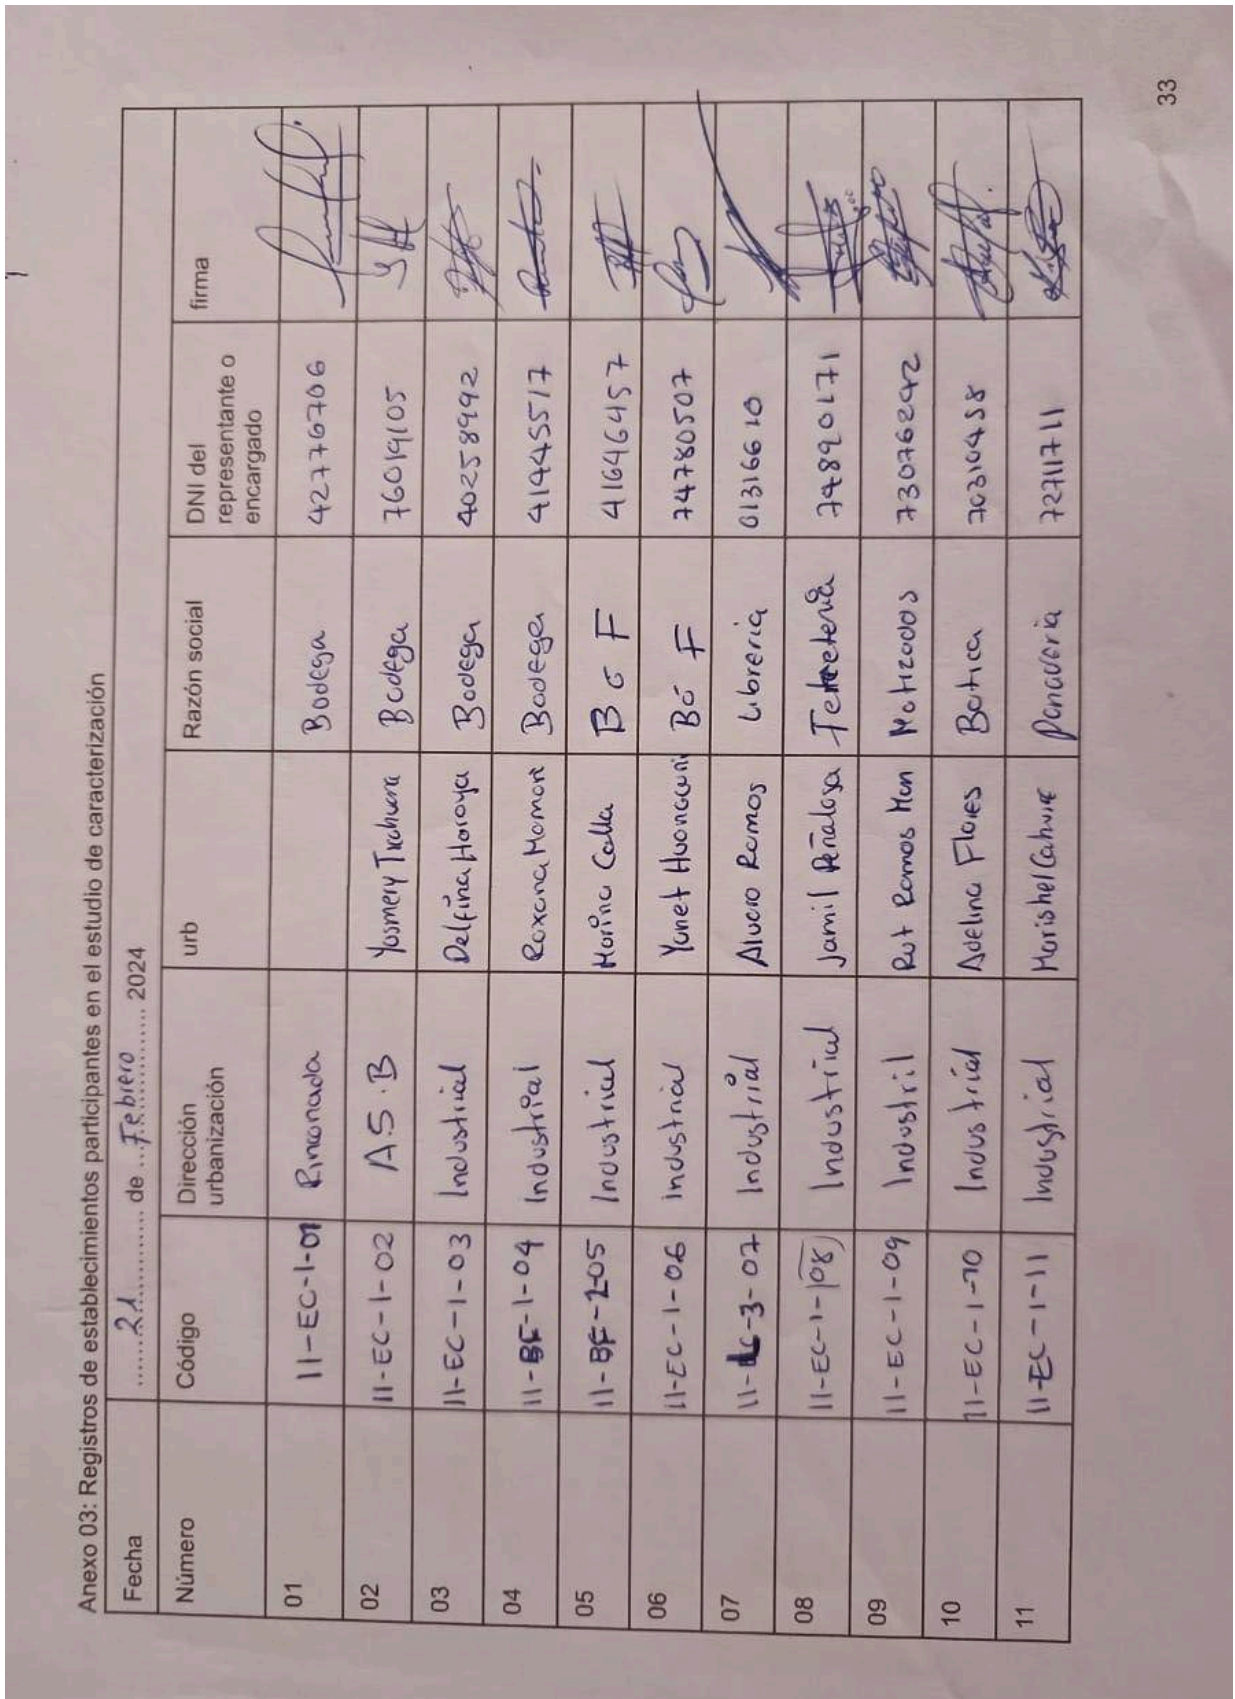 Anexo 03: Registros de establecimientos participantes en el estudio de caracterización
Fecha ........21............ de ...Febrero............... 2024
Número Código Dirección urbanización urb Razón social DNI del representante o encargado firma
01 11-EC-1-01 Rinconada Bodega 42776706
02 11-EC-1-02 A.S.B Yosmery Bodega 76019105
03 11-EC-1-03 Industrial Delfina Bodega 40258992
04 11-BF-1-04 Industrial Roxana Mamani Bodega 41445517
05 11-BF-1-05 Industrial Marina Calla B o F 41646457
06 11-EC-1-06 industrial Yanet Huanccuni Bo F 74780507
07 11- -3-07 Industrial Alvaro Ramos Libreria 01316610
08 11-EC-1-08 Industrial Jamil Peñaloza 74890171
09 11-EC-1-09 Industril Rut Ramos Mam Matizados 73076242
10 11-EC-1-10 Industrial Adelina Flores Botica 70310458
11 11-EC-1-11 Industrial Marishel Cahui Panaderia 72711711
33